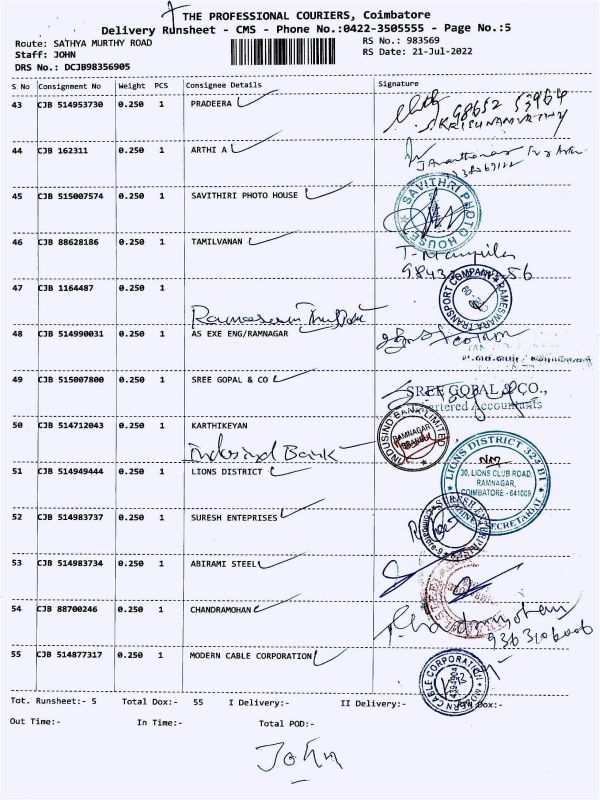 THE PROFESSIONAL COURIERS, Coimbatore
Delivery Runsheet - CMS - Phone No.:0422-3505555 - Page No.:5
Route: SATHYA MURTHY ROAD RS No.: 983569
Staff: JOHN RS Date: 21-Jul-2022
DRS No.: DCJB98356905
S No Consignment No Weight PCS Consignee Details Signature
43 CJB 514953730 0.250 1 PRADEERA
98652 53964
KRISHNAMURTHY
44 CJB 162311 0.250 1 ARTHI A
45 CJB 515007574 0.250 1 SAVITHIRI PHOTO HOUSE
SAVITHRI PHOTO HOUSE
46 CJB 88628186 0.250 1 TAMILVANAN
47 CJB 1164487 0.250 1
RAMESWARA TRANSPORT COMPANY
48 CJB 514990031 0.250 1 AS EXE ENG/RAMNAGAR
49 CJB 515007800 0.250 1 SREE GOPAL & CO
SREE GOBAL & CO.,
Chartered Accountants
50 CJB 514712043 0.250 1 KARTHIKEYAN
Indusind Bank
INDUSIND BANK LIMITED
RAMNAGAR
51 CJB 514949444 0.250 1 LIONS DISTRICT
LIONS DISTRICT 324 B1
30, LIONS CLUB ROAD,
RAMNAGAR,
COIMBATORE - 641009
CABINET SECRETARIAT
52 CJB 514983737 0.250 1 SURESH ENTEPRISES
53 CJB 514983734 0.250 1 ABIRAMI STEEL
54 CJB 88700246 0.250 1 CHANDRAMOHAN
55 CJB 514877317 0.250 1 MODERN CABLE CORPORATION
MODERN CABLE CORPORATION
Tot. Runsheet:- 5 Total Dox:- 55 I Delivery:- II Delivery:- Non Dox:-
Out Time:- In Time:- Total POD:-
John